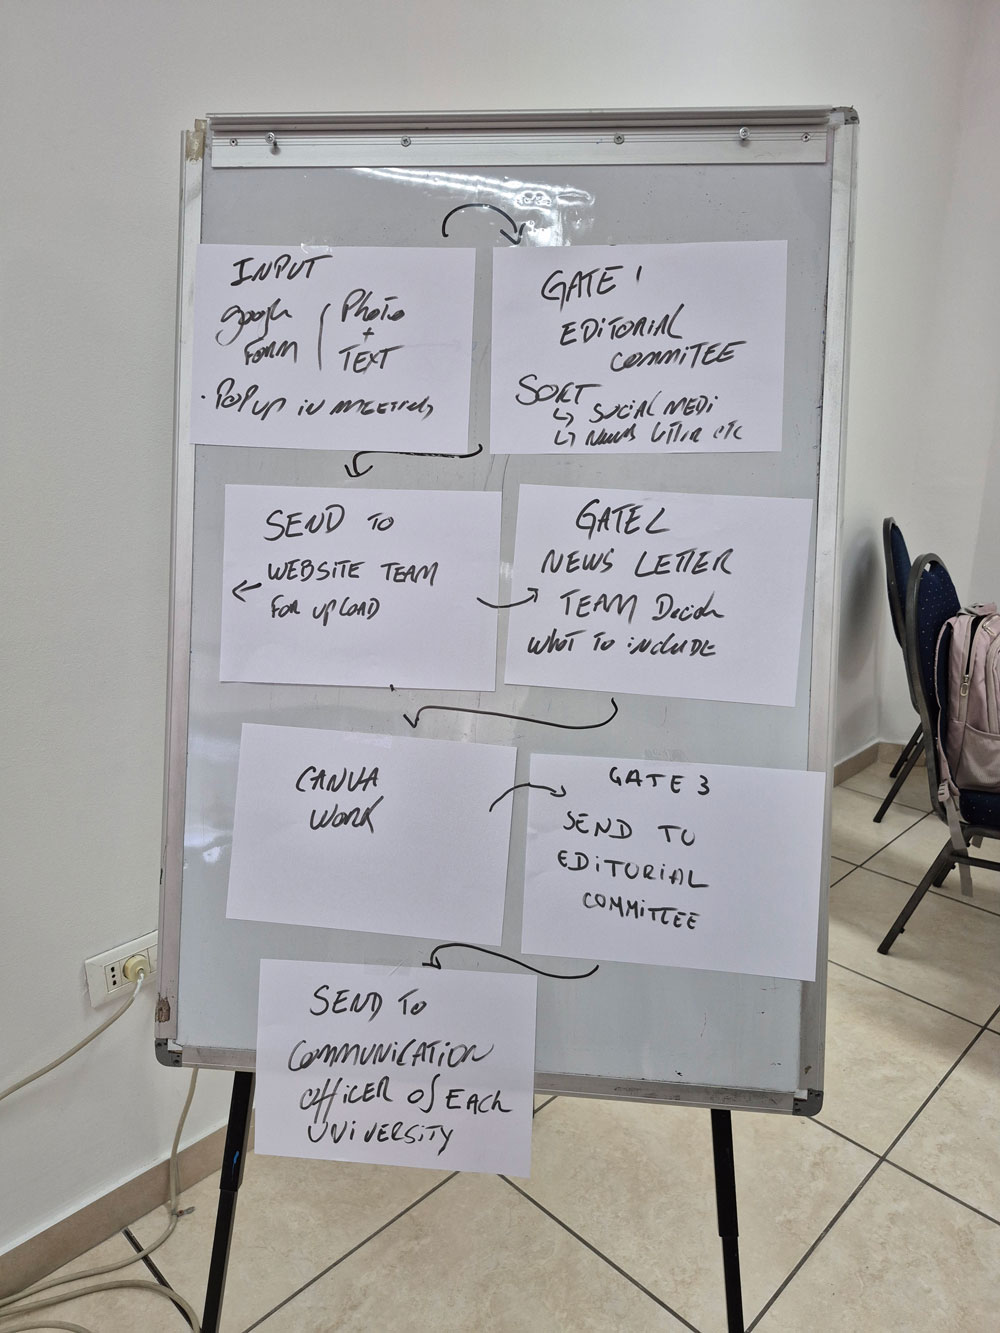 INPUT
google
FORM
Photo
+
TEXT
. POP UP IN MEETINGS
GATE 1
EDITORIAL
COMMITEE
SORT
↳ SOCIAL MEDI
↳ NEWS LETTER etc
SEND TO
WEBSITE TEAM
FOR UPLOAD
GATE 2
NEWS LETTER
TEAM Decide
WHAT TO INCLUDE
CANVA
WORK
GATE 3
SEND TO
EDITORIAL
COMMITTEE
SEND TO
COMMUNICATION
OFFICER OF EACH
UNIVERSITY